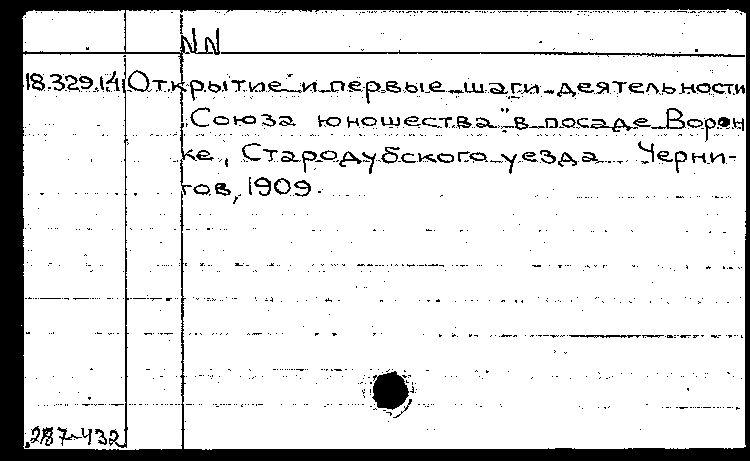 NN
18.329.14 Открытие и первые шаги деятельности
„Союза юношества" в посаде Ворон
ке, Стародубского уезда Черни-
гов, 1909.
287-432